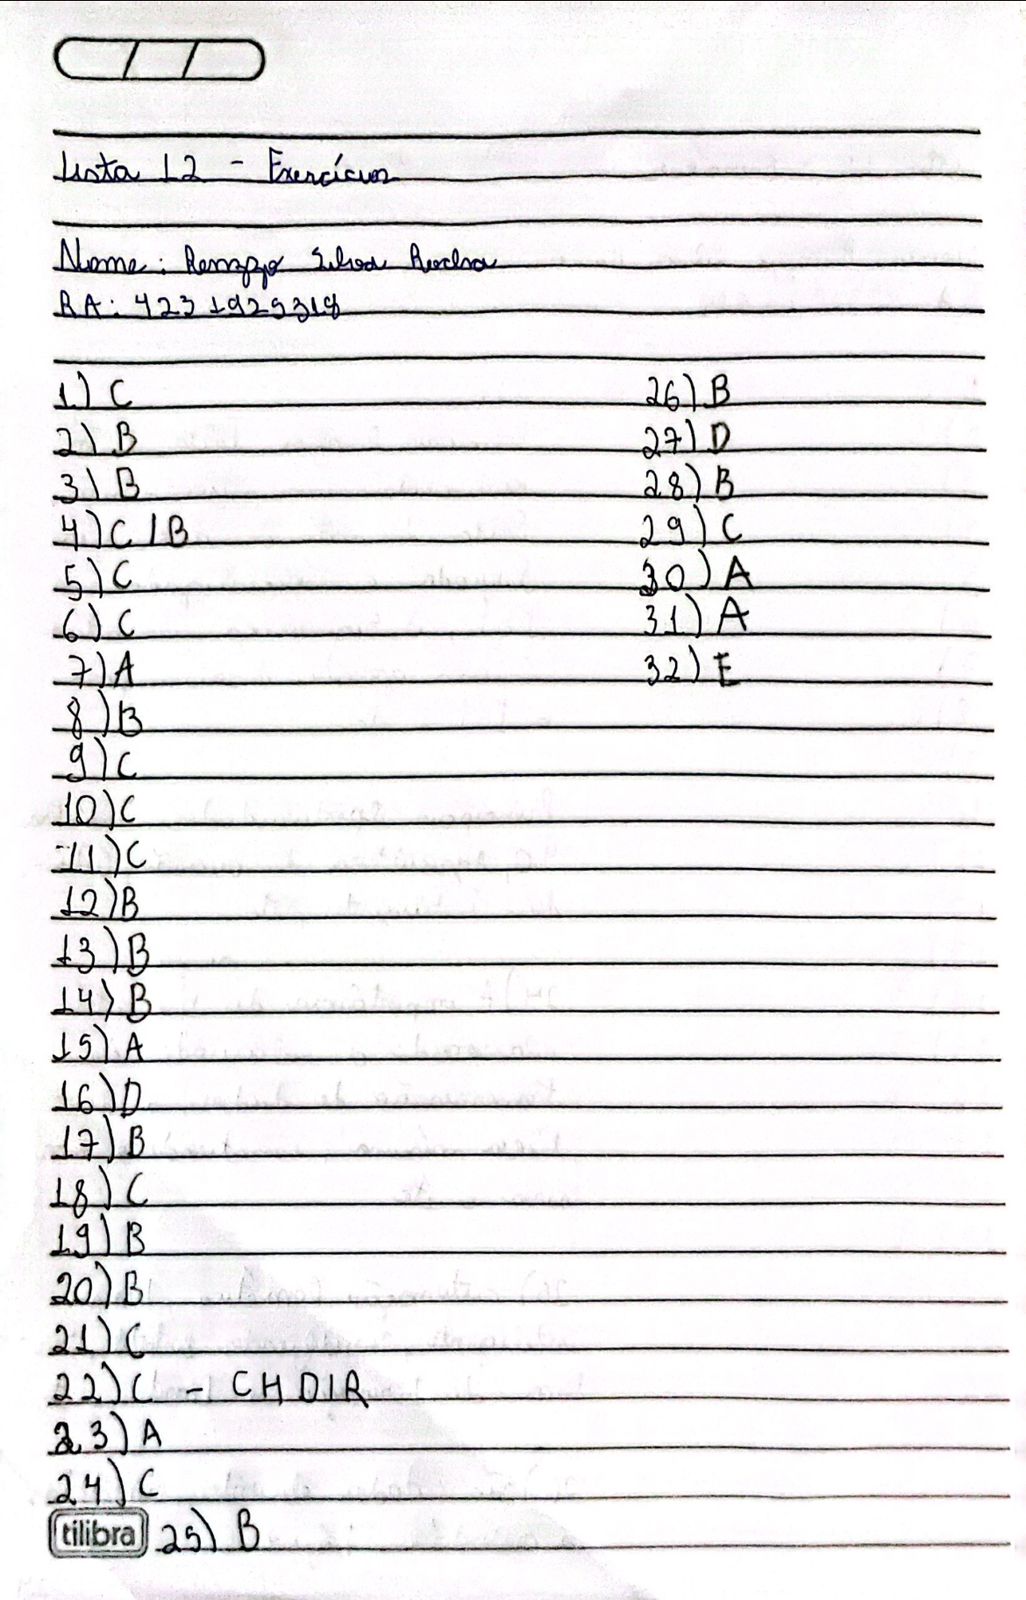 Lista 12 - Exercícios
Nome: Renzzo Silva Rocha
RA: 4231925318
1) C
2) B
3) B
4) C / B
5) C
6) C
7) A
8) B
9) C
10) C
11) C
12) B
13) B
14) B
15) A
16) D
17) B
18) C
19) B
20) B
21) C
22) C - CHDIR
23) A
24) C
tilibra 25) B
26) B
27) D
28) B
29) C
30) A
31) A
32) E